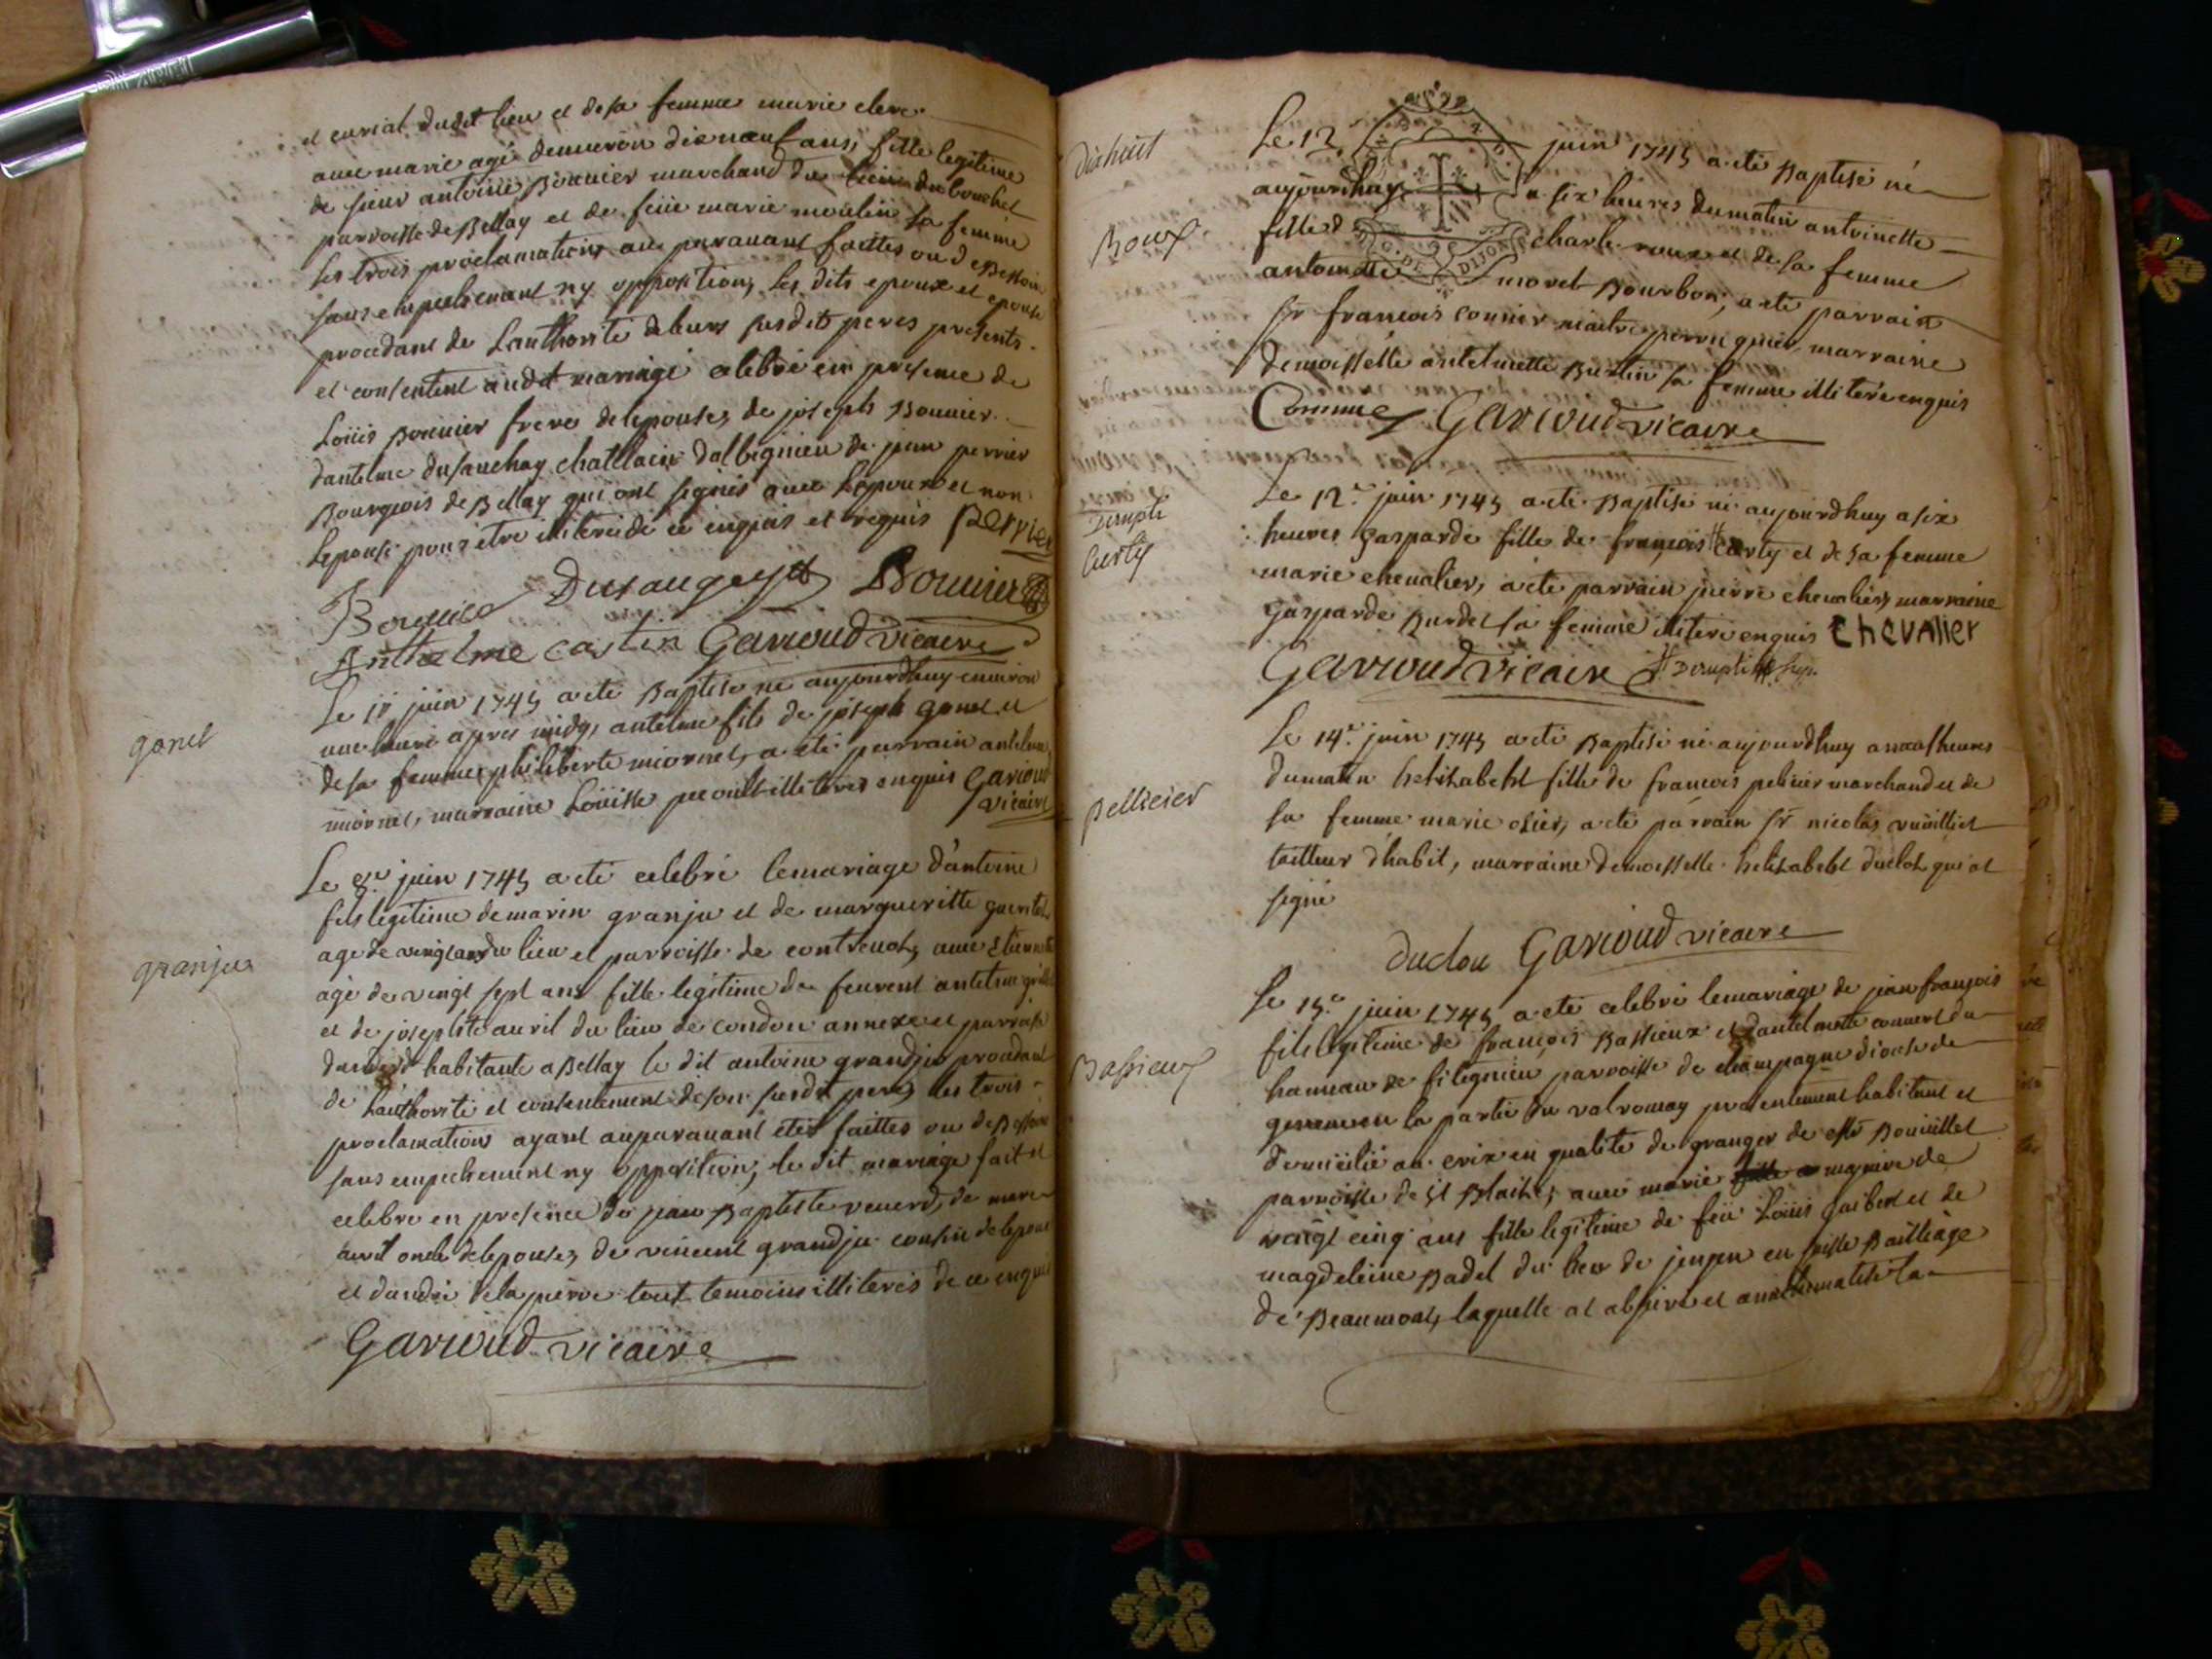 et curial dudit lieu et de sa femme marie clerc
avec marie agé denuiron dix nœuf ans, fille legitime
de sieur antoine Bonnier marchand du lieu du bouchet
parroisse de Bellay et de feüe marie moulin sa femme
les trois proclamations au paravant faittes ou de Besoin
sans empechement ny opposition, les dits epoux et epouse
procedant de Lauthorité de leurs susdits peres presents
et consentent audit mariage celebré en presence de
Loüis Bonnier frere de lepouse, de joseph Bonnier
dantelme dusauchay chatlain dalbignieu de jean perrier
Bourgeois de Bellay qui ont signés avec Lepoux et non
Lepouse pour etre illiterée de ce enquis et requis Perrier
Bonnier
Anthelme castin Garioud vicaire
ganet
Le juin 1745 a eté Baptisé né aujourdhuy environ
une heure apres midy, antelme fils de joseph ganet et
de sa femme philiberte miornet, a eté parrain antelme
miornet, marraine Loüisse illiteres enquis Garioud
vicaire
granju
Le 8e juin 1745 a eté celebré le mariage d'antoine
fils legitime de marin granju et de margueritte
agé de vingt ans du lieu et parroisse de contrevoz, avec
agé de vingt sept ans fille legitime de feurent antelme
et de josephte avril du lieu de condon annexe et parroisse
dandert habitante a Bellay le dit antoine grandju procedant
de Lauthorité et consentement de son susdit pere, les trois
proclamations ayant auparavant etés faittes ou de Besoin
sans empechement ny opposition, le dit mariage fait et
celebre en presence de jean Baptiste venerd, de marc
avril oncle de lepouse, de vincent grandju cousin de lepoux
et dandré de la pierre tout temoins illiterés de ce enquis
Garioud vicaire
dixhuit
Le 12 juin 1745 a eté Baptisé né
Roux
aujourdhuy a six heures du matin antoinette
fille de charle roux et de sa femme
G. DE DIJON
antoinette morel Bourbon, a eté parrain
sr francois connier maitre perruquier, marraine
demoisselle antelmette sa femme illiterée enquis
Garioud vicaire
Le 12e juin 1745 a eté Baptisé né aujourdhuy a six
Derupti
Curty
heures gasparde fille de françois curty et de sa femme
marie chevalier, a eté parrain pierre chevalier, marraine
gasparde Burdet sa femme illiterée enquis chevalier
Garioud vicaire Derupti
Le 14e juin 1745 a eté Baptisé né aujourdhuy a nœuf heures
pellicier
du matin helisabeht fille de francois pelicier marchand et de
sa femme marie osier, a eté parrain sr nicolas
tailleur d'habit, marraine demoisselle helisabeht duclos qui at
signé
duclou Garioud vicaire
Bassieux
Le 15e juin 1745 a eté celebré le mariage de jean françois
fils legitime de françois Bassieux et dantelmette convert du
hameau de filegnieu parroisse de champagne diocese de
geneve en la partie du valromay presentement habitant et
domicilié au croix en qualité de granger de
parroisse de st Blaise, avec marie majeure de
vingt cinq ans fille legitime de feü Loüis et de
magdeleine Badel du lieu de en suisse Bailliage
de Beaumont, laquelle at abjuré et anathematisé la